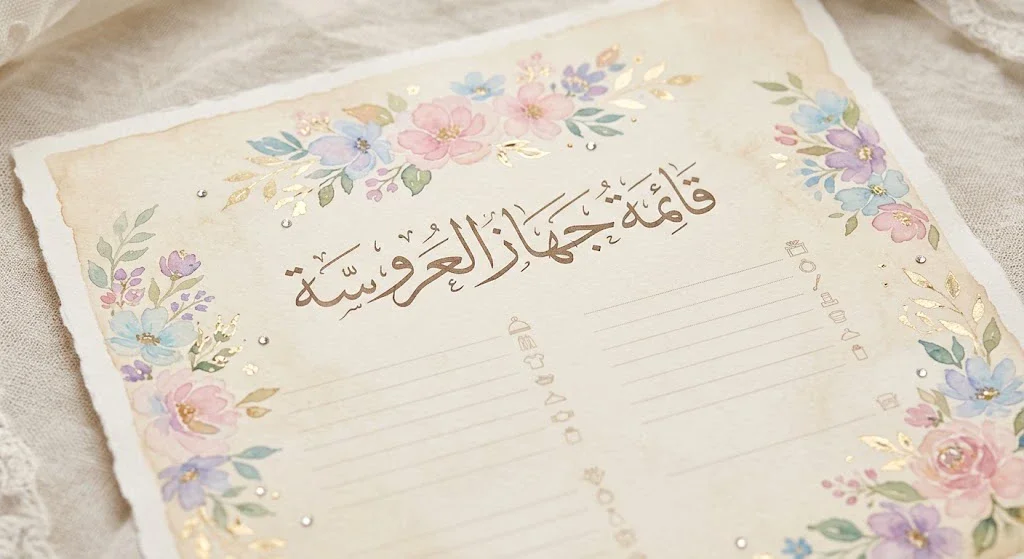 قَائِمَة جُهَاز العَرُوسَّة